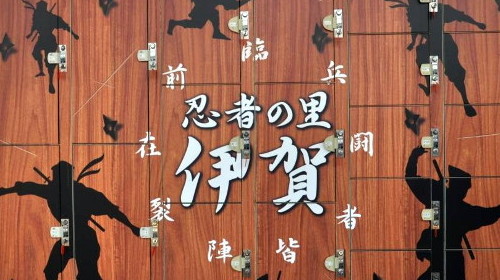 忍者の里
伊賀
臨
兵
闘
者
皆
陣
裂
在
前